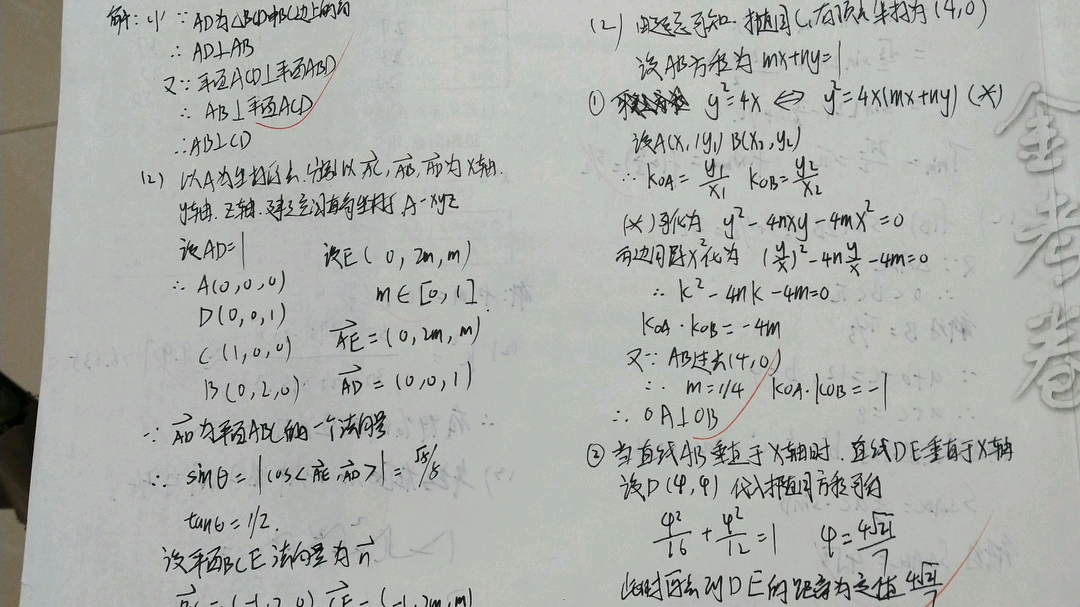 解：(1) ∵ AD为△BCD中BC边上的高
∴ AD⊥AB
又∵ 平面ACD⊥平面ABD
∴ AB⊥平面ACD
∴AB⊥CD
(2) 以A为坐标原点，以AC，AB，AD为X轴
y轴，Z轴，建立空间直角坐标系 A-xyz
设AD=1 设E(0, 2m, m)
∴ A(0,0,0) m∈[0,1]
D(0,0,1) AE=(0,2m,m)
C(1,0,0) AD=(0,0,1)
B(0,2,0)
∵ AD为平面ABC的一个法向量
∴ sinθ=|cos<AE,AD>|=√5/5
tanθ=1/2.
设平面BCE法向量为n
BC=(-1,2,0) CE=(-1,2m,m)
(2) 由题意可知，椭圆C,右顶点坐标为(4,0)
设AB方程为 mx+ny=1
① y²=4x ⇔ y²=4x(mx+ny) (*)
设A(x₁,y₁) B(x₂,y₂)
∴ KOA=y₁/x₁ KOB=y₂/x₂
(*)可化为 y²-4nxy-4mx²=0
两边同除x²化为 (y/x)²-4n y/x-4m=0
∴ k²-4nk-4m=0
KOA·KOB=-4m
又∵ AB过点(4,0)
∴ m=1/4 KOA·KOB=-1
∴ OA⊥OB
② 当直线AB垂直于X轴时，直线DE垂直于X轴
设D(φ,φ) 代入椭圆方程可得
φ²/16+φ²/12=1 φ=4√21/7
此时原点到DE的距离为定值 4√21/7
金考卷